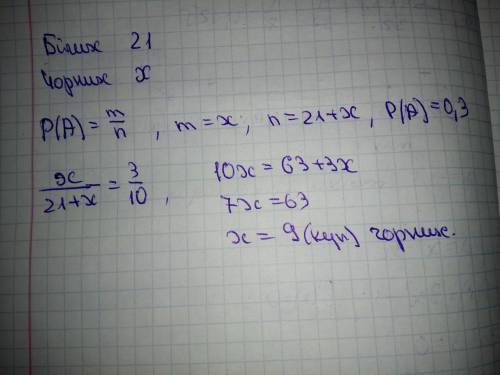 Білих 21
Чорних x
P(A) = m/n , m = x , n = 21+x , P(A) = 0,3
x/(21+x) = 3/10 ,
10x = 63+3x
7x = 63
x = 9 (куль) чорних.